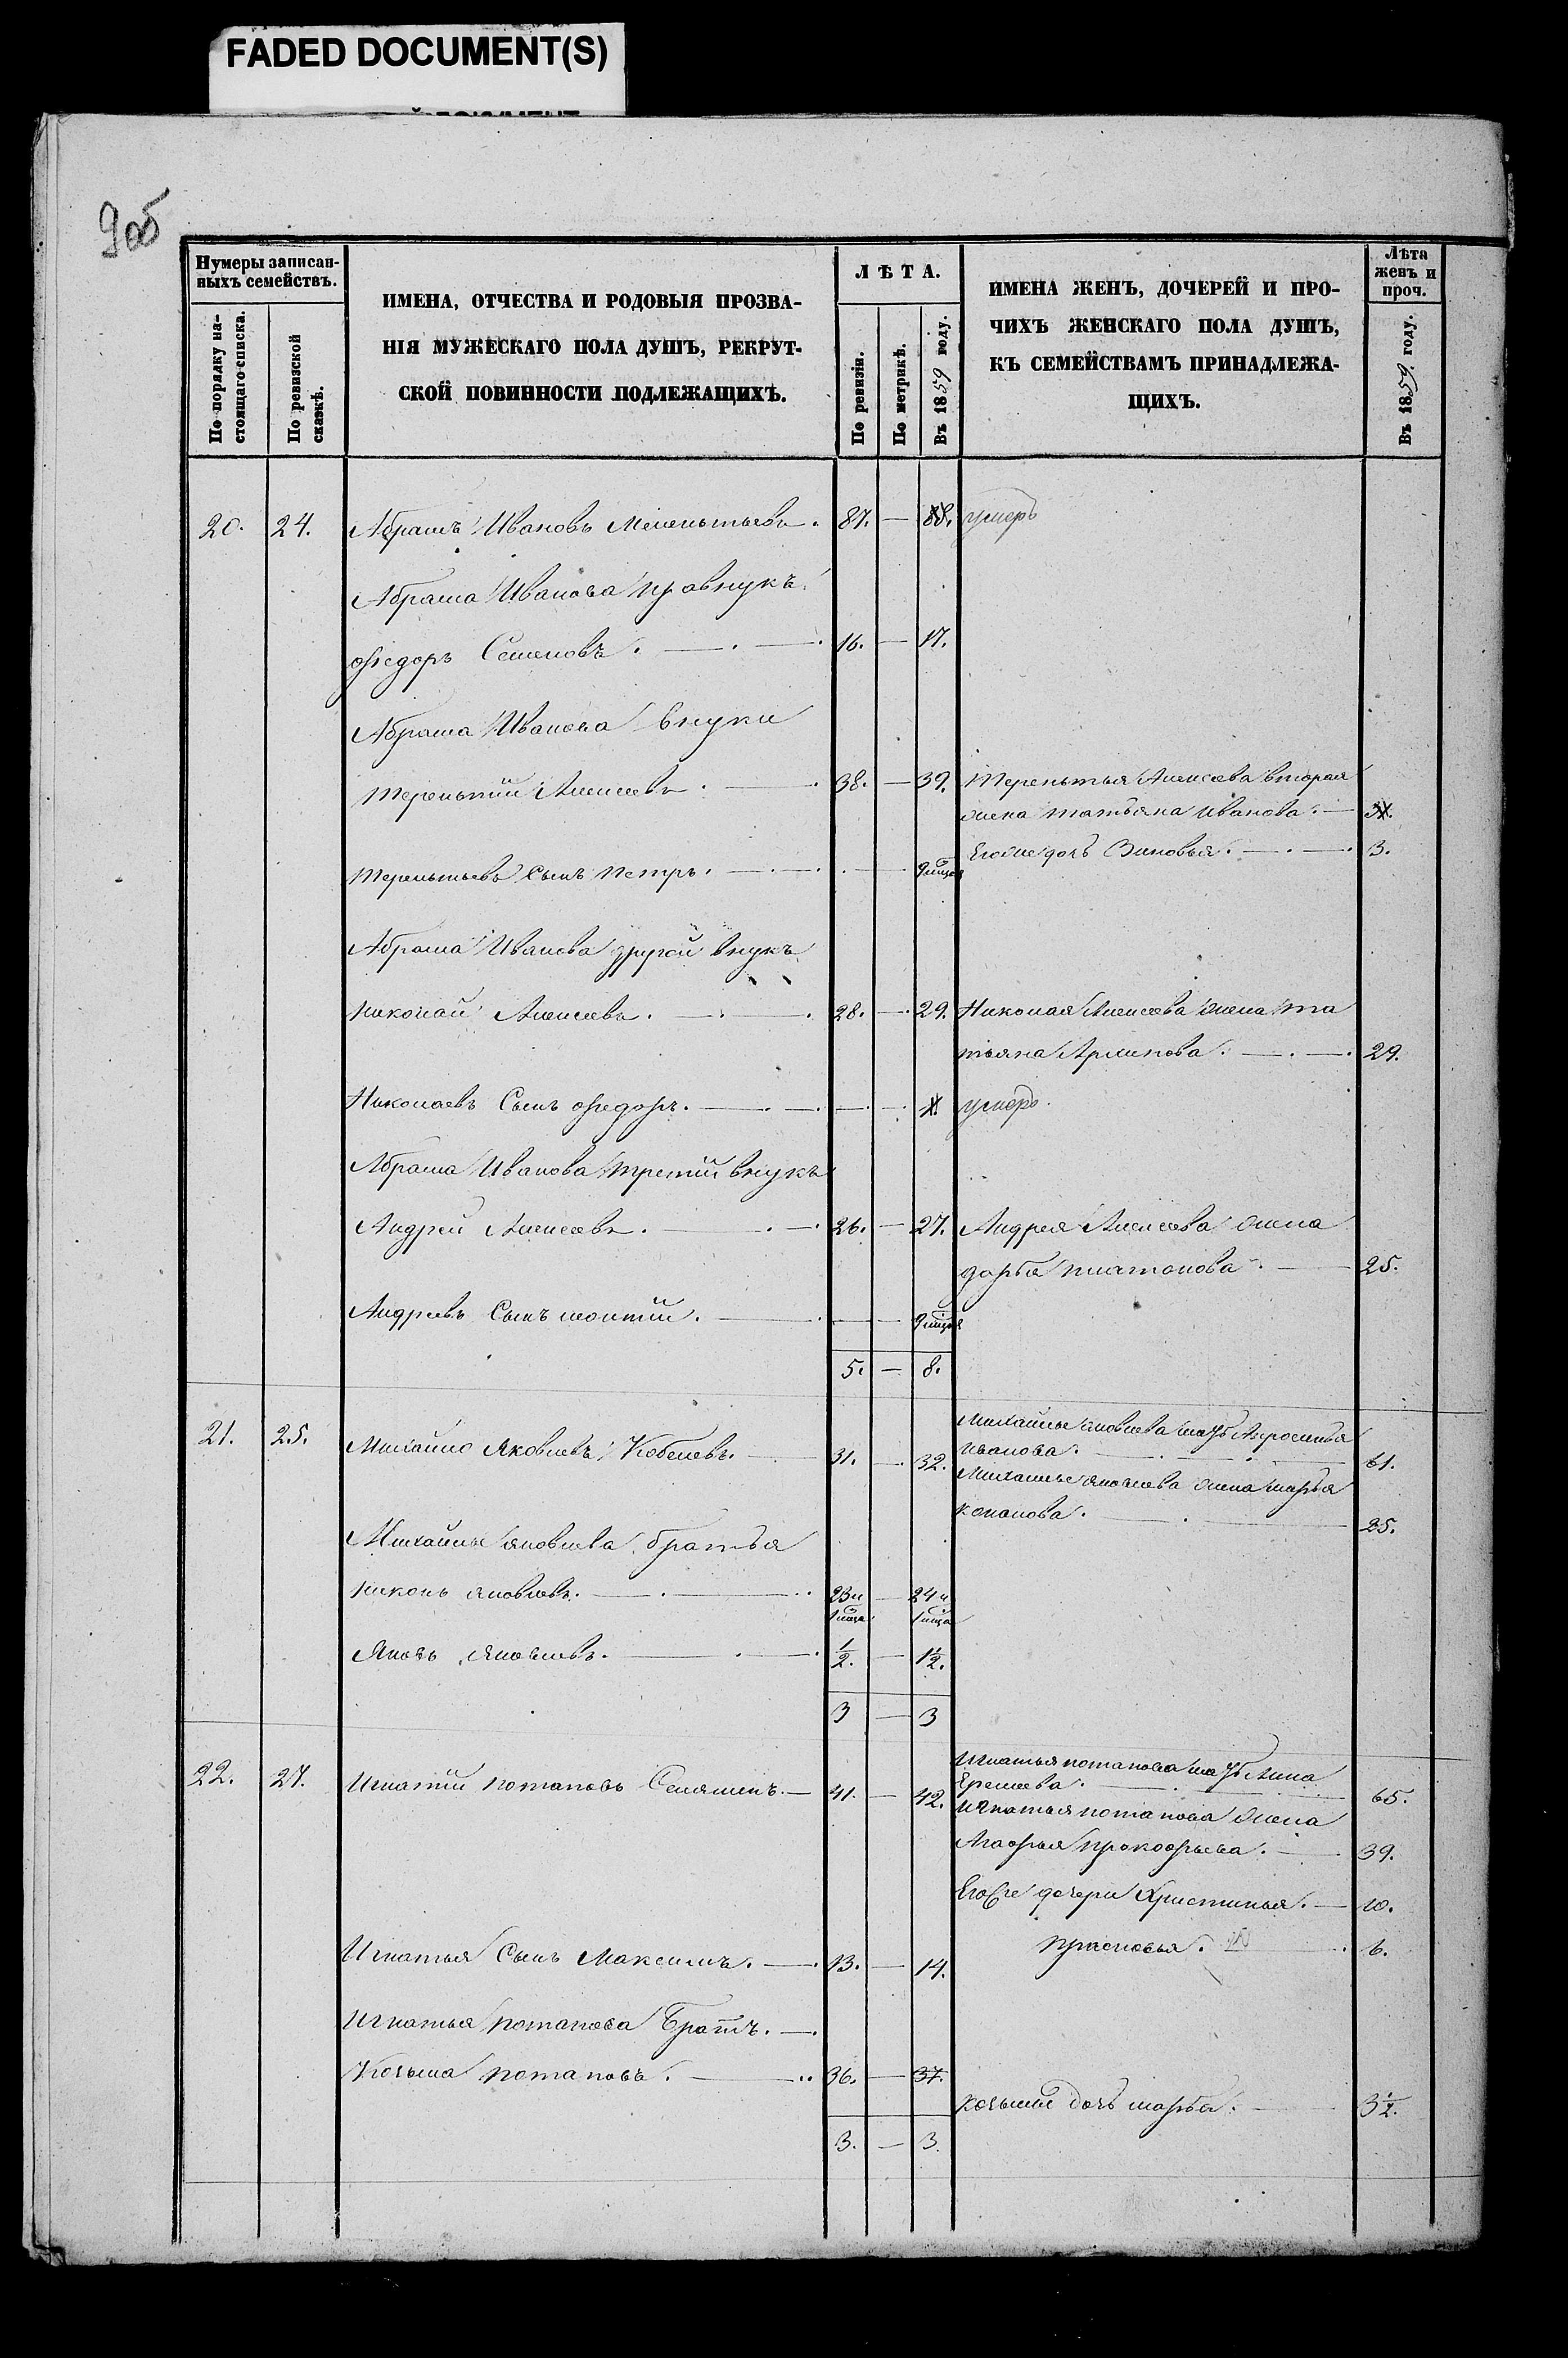 FADED DOCUMENT(S)
9об
Нумеры записан-
ныхъ семействъ.
По порядку на-
стоящаго списка.
По ревизской
сказкѣ.
ИМЕНА, ОТЧЕСТВА И РОДОВЫЯ ПРОЗВА-
НІЯ МУЖЕСКАГО ПОЛА ДУШЪ, РЕКРУТ-
СКОЙ ПОВИННОСТИ ПОДЛЕЖАЩИХЪ.
ЛѢТА.
По ревизіи.
По метрикѣ.
Въ 1859 году.
ИМЕНА ЖЕНЪ, ДОЧЕРЕЙ И ПРО-
ЧИХЪ ЖЕНСКАГО ПОЛА ДУШЪ,
КЪ СЕМЕЙСТВАМЪ ПРИНАДЛЕЖА-
ЩИХЪ.
Лѣта
женъ и
проч.
Въ 1859 году.
20. 24. Абрамъ Ивановъ Мелентьевъ. 87. — 88. умеръ
Абрама Иванова правнукъ
Ѳедоръ Семеновъ. 16. — 17.
Абрама Иванова внуки
Терентий Алексеевъ. 38. — 39. Терентья Алексеева вторая
жена татьяна иванова. — 31.
Егоже дочь Зиновья. 3.
Терентьевъ Сынъ петръ. 9 мца
Абрама Иванова другой внукъ
николай Алексеевъ. 28. — 29. Николая Алексеева жена та
тьяна Архипова. 29.
Николаевъ Сынъ Ѳедоръ. 1. умеръ.
Абрама Иванова третий внукъ
Андрей Алексеевъ. 26. — 27. Андрея Алексеева жена
дарья платонова. 25.
Андреевъ Сынъ леонтий. 9 мца
5. — 8.
21. 25. Михайло Яковлевъ Кобелевъ. 31. — 32.
Михайлы яковлева мать Афросинья
иванова. 61.
Михайлы яковлева жена марья
конанова. 25.
Михайлы яковлева братья
никонъ яковлевъ. 23 и — 24 и
1 мца 1 мца
Яковъ яковлевъ. 1/2. — 1 1/2.
3 — 3
22. 27. Игнатий потаповъ Селяминъ. — 41. — 42.
Игнатья потапова мать Анна
Еремеева. 65.
Игнатья потапова жена
Агафья прокофьева. 39.
Егоже дочери Христинья. — 10.
прасковья. 6.
Игнатья Сынъ Максимъ. 13. — 14.
Игнатья потапова Братъ.
Козьма потаповъ. 36. — 37.
козьмы дочь марья. 3 1/2.
3. — 3.